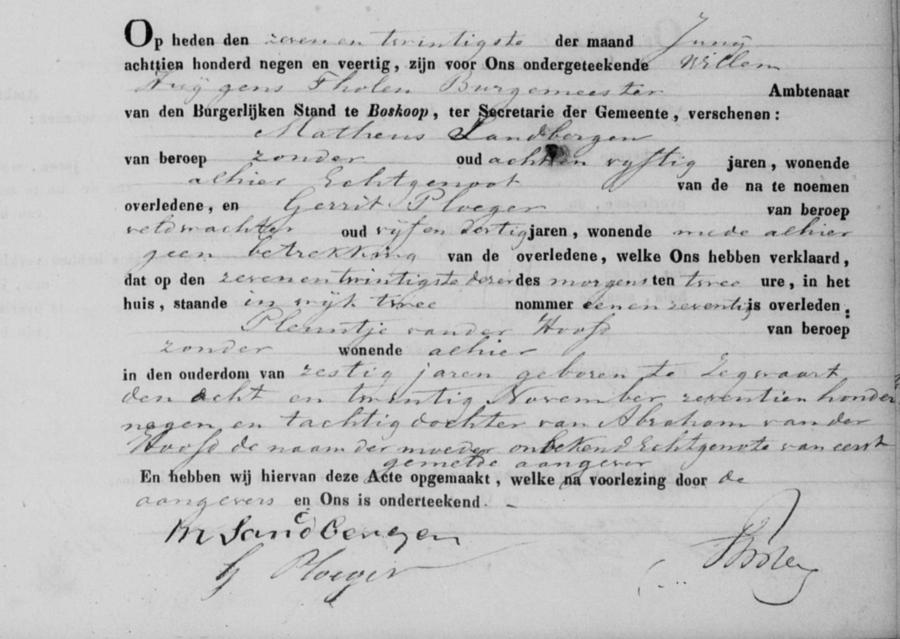 Op heden den zevenentwintigste der maand Junij
achttien honderd negen en veertig, zijn voor Ons ondergeteekende Willem
Huijgens Tholen Burgemeester Ambtenaar
van den Burgerlijken Stand te Boskoop, ter Secretarie der Gemeente, verschenen:
Matheus Sandbergen
van beroep zonder oud acht en vyftig jaren, wonende
alhier Echtgenoot van de na te noemen
overledene, en Gerrit Ploeger van beroep
veldwachter oud vijf en dertig jaren, wonende mede alhier
geen betrekking van de overledene, welke Ons hebben verklaard,
dat op den zevenentwintigste dezer des morgens ten twee ure, in het
huis, staande in wijk twee nommer een en zeventig is overleden:
Pleuntje van der Hoofd van beroep
zonder wonende alhier
in den ouderdom van zestig jaren geboren te Zegwaart
den acht en twintig November zeventien honder
negen en tachtig dochter van Abraham van der
Hoofd de naam der moeder onbekend Echtgenote van eerst
gemelde aangever
En hebben wij hiervan deze Acte opgemaakt, welke na voorlezing door de
aangevers en Ons is onderteekend.
M Sandbergen
G Ploeger
Tholen